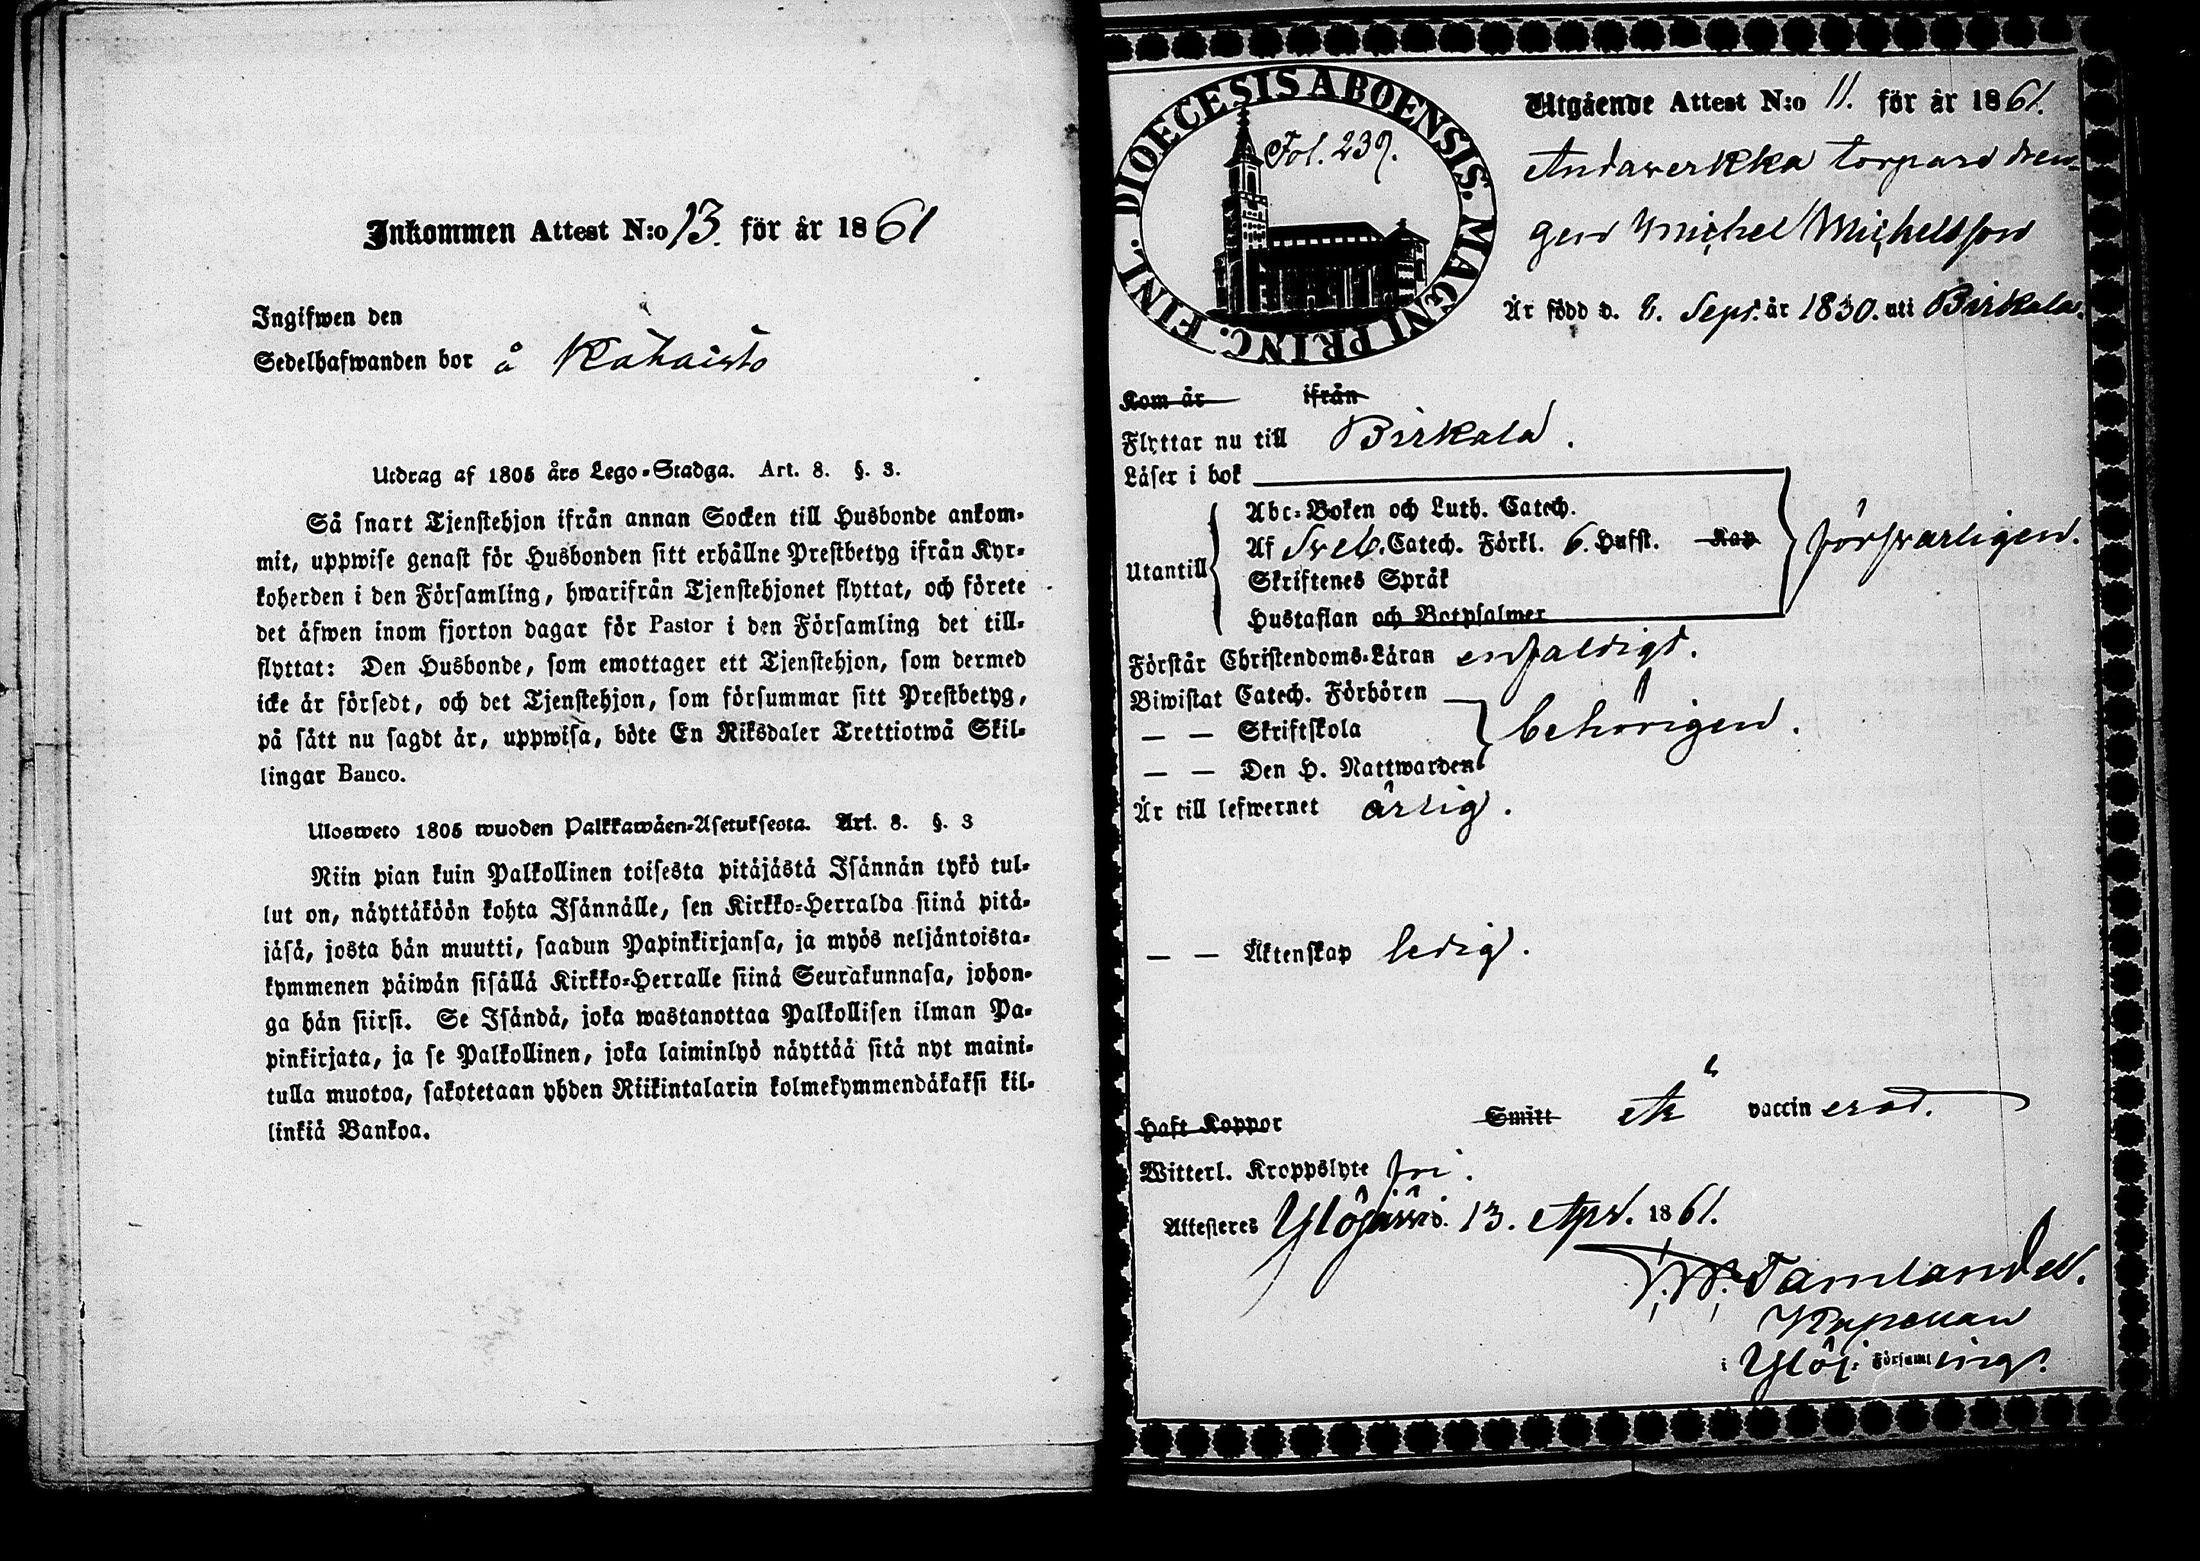 Inkommen Attest N:o 13. för år 1861
Ingifwen den
Sedelhafwanden bor å Rahaisto
Utdrag af 1805 års Lego-Stadga. Art. 8. §. 3.
Så snart Tjenstehjon ifrån annan Socken till Husbonde ankom-
mit, uppwise genast för Husbonden sitt erhållne Prestbetyg ifrån Kyr-
koherden i den Församling, hwarifrån Tjenstehjonet flyttat, och förete
det äfwen inom fjorton dagar för Pastor i den Församling det till-
flyttat: Den Husbonde, som emottager ett Tjenstehjon, som dermed
icke är försedt, och det Tjenstehjon, som försummar sitt Prestbetyg,
på sätt nu sagdt är, uppwisa, böte En Riksdaler Trettiotwå Skil-
lingar Banco.
Ulosweto 1805 wuoden Palkkawäen-Asetuksesta. Art. 8. §. 3
Niin pian kuin Palkollinen toisesta pitäjästä Isännän tykö tul-
lut on, näyttäköön kohta Isännälle, sen Kirkko-Herralda siinä pitä-
jäsä, josta hän muutti, saadun Papinkirjansa, ja myös neljäntoista-
kymmenen päiwän sisällä Kirkko-Herralle siinä Seurakunnasa, johon-
ga hän siirsi. Se Isändä, joka wastanottaa Palkollisen ilman Pa-
pinkirjata, ja se Palkollinen, joka laiminlyö näyttää sitä nyt maini-
tulla muotoa, sakotetaan yhden Riikintalarin kolmekymmendäkaksi kil-
linkiä Bankoa.
DIOECESIS ABOENSIS. MAGNI PRINC. FINL.
Fol. 239.
Utgående Attest N:o 11. för år 1861.
Andawerkka torpard dren-
gen Michel Michelsson
Är född d. 8. Sept. år 1830. uti Birkala.
Kom år ifrån
Flyttar nu till Birkala.
Läser i bok
Utantill
Abc-Boken och Luth. Catech.
Af Sveb. Catech. Förkl. 6. Hufst. Kap
Skriftenes Språk
Hustaflan och Botpsalmer
försvarligen.
Förstår Christendoms-Läran enfaldigt.
Biwistat Catech. Förhören
— — Skriftskola
— — Den H. Nattwarden
behörigen.
Är till lefwernet ärlig.
— — Äktenskap ledig.
Haft Koppor Smitt Är vaccinerad.
Witterl. Kroppslyte fri.
Attesteres Ylöjärvi d. 13. Apr. 1861.
Tamlander.
Kapellan
i Ylöj. Församling.